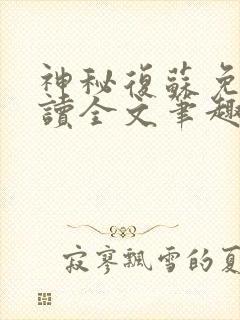 神秘復蘇免
讀全文筆趣
寂寥飄雪的夏